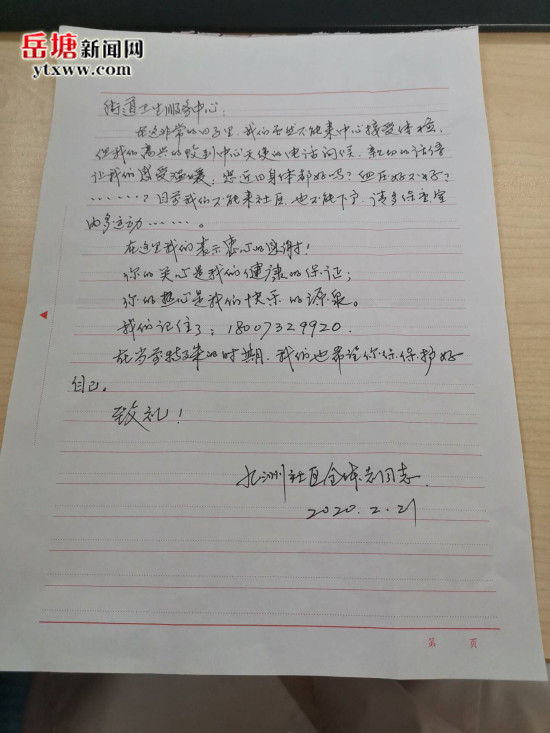 岳塘新闻网
ytxww.com
街道卫生服务中心:
在这非常的日子里,我们虽然不能来中心接受体检,
但我们高兴的收到中心天使的电话问候,亲切的话语
让我们感受温暖:您近日身体都好吗?血压好不好?
……?目前我们不能来社区,也不能下户,请多保重,室
内多运动……。
在这里我们表示衷心的感谢!
你们关心是我们健康的保证;
你们热心是我们快乐的源泉。
我们记住了:18007329920.
在当前特殊的时期,我们也希望你们保护好
自己。
致礼!
社区全体老同志
2020.2.21
第 页